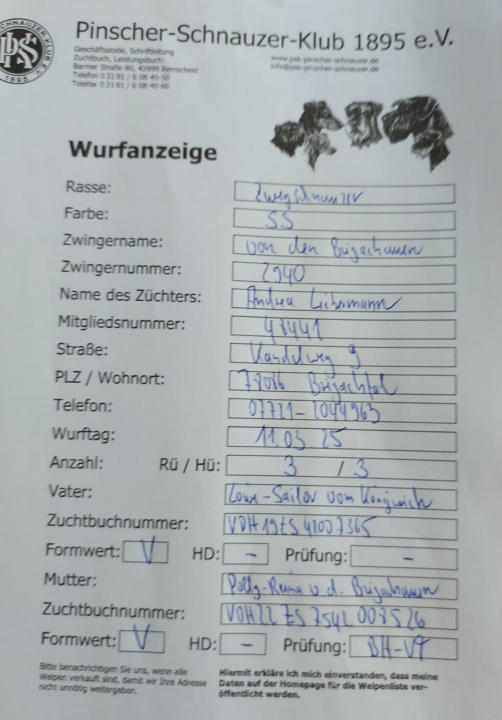 Pinscher-Schnauzer-Klub 1895 e.V.
Geschäftsstelle, Schriftleitung
Zuchtbuch, Leistungsbuch:
Barmer Straße 80, 42899 Remscheid
Telefon 0 21 91 / 6 08 40-50
Telefax 0 21 91 / 6 08 40-60
www.psk-pinscher-schnauzer.de
info@psk-pinscher-schnauzer.de
Wurfanzeige
Rasse: Zwergschnauzer
Farbe: SS
Zwingername: von den Brigachauen
Zwingernummer: 2940
Name des Züchters: Andrea Liebermann
Mitgliedsnummer: 47441
Straße: Kandelweg 9
PLZ / Wohnort: 78086 Brigachtal
Telefon: 07721-2044963
Wurftag: 11.03.25
Anzahl: Rü / Hü: 3 / 3
Vater: -Sailor vom Königreich
Zuchtbuchnummer: VDH19ZS41007365
Formwert: V HD: - Prüfung: -
Mutter: Polly-Reina v. d. Brigachauen
Zuchtbuchnummer: VDH22 ZS 7542 008526
Formwert: V HD: - Prüfung: BH-VT
Bitte benachrichtigen Sie uns, wenn alle
Welpen verkauft sind, damit wir Ihre Adresse
nicht unnötig weitergeben.
Hiermit erkläre ich mich einverstanden, dass meine
Daten auf der Homepage für die Welpenliste ver-
öffentlicht werden.